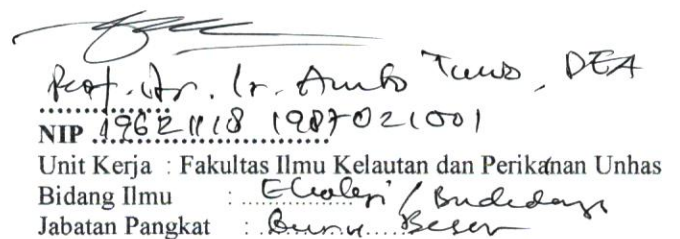 Prof. Dr. Ir. Ambo Tuwo, DEA
NIP 19621118 1987021001
Unit Kerja : Fakultas Ilmu Kelautan dan Perikanan Unhas
Bidang Ilmu : Ekologi / Budidaya
Jabatan Pangkat : Guru Besar